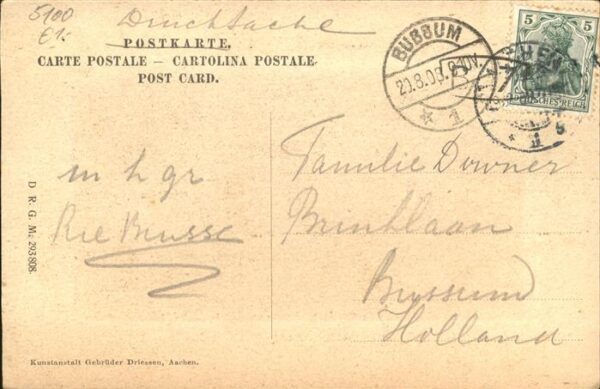 5100
€1.-
Drucksache
POSTKARTE.
CARTE POSTALE – CARTOLINA POSTALE
POST CARD.
BUSSUM
1
5
5
DEUTSCHES REICH
m h gr
Rie Brusse
Familie Downer
Brinklaan
Bussum
Holland
D. R. G. M. 293808.
Kunstanstalt Gebrüder Driessen, Aachen.